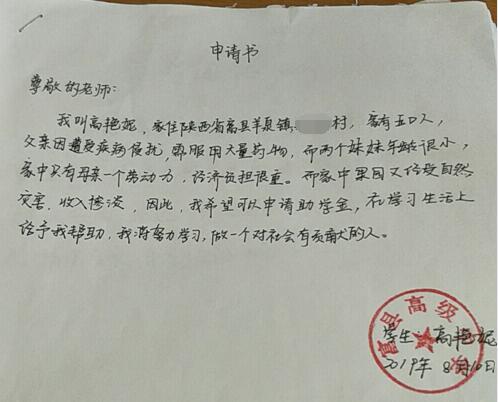 申请书
尊敬的老师:
我叫高艳妮，家住陕西省富县羊泉镇 村，家有五口人，
父亲因遭受疾病侵扰，需服用大量药物，而两个妹妹年龄很小，
家中只有母亲一个劳动力，经济负担很重。而家中果园又经受自然
灾害，收入惨淡，因此，我希望可以申请助学金，在学习生活上
给予我帮助，我将努力学习，做一个对社会有贡献的人。
富县高级
学生：高艳妮
2019年 8月10日